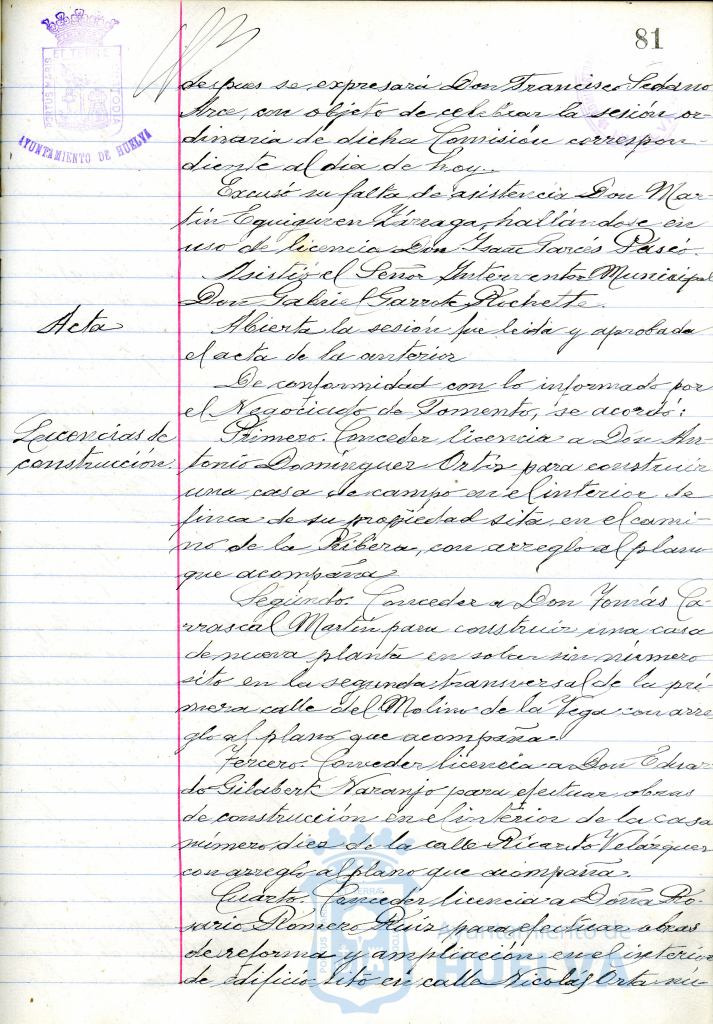 81
PORTUS MARIS ET TERRAE CUSTODIA
AYUNTAMIENTO DE HUELVA
despues se expresará Don Francisco Sedano
Arce, con objeto de celebrar la sesión or-
dinaria de dicha Comisión correspon-
diente al dia de hoy.
Excusó su falta de asistencia Don Mar-
tín Eguiguren Zárraga, hallándose en
uso de licencia Don Isaac Garcés Paseó.
Asistió el Señor Interventor Municipal
Don Gabriel Garrote Rochette.
Acta
Abierta la sesión fue leida y aprobada
el acta de la anterior
De conformidad con lo informado por
el Negociado de Fomento, se acordó:
Licencias de
construcción.
Primero. Conceder licencia a Don An-
tonio Dominguez Ortiz para construir
una casa de campo en el interior de
finca de su propiedad sita en el cami-
no de la Ribera, con arreglo al plano
que acompaña
Segundo. Conceder a Don Tomás Ca-
rrascal Martín para construir una casa
de nueva planta en solar sin número
sito en la segunda transversal de la pri-
mera calle del Molino de la Vega con arre-
glo al plano que acompaña.
Tercero. Conceder licencia a Don Eduar-
do Gilabert Naranjo para efectuar obras
de construcción en el interior de la casa
número diez de la calle Ricardo Velázquez
con arreglo al plano que acompaña.
Cuarto. Conceder licencia a Doña Ro-
sario Romero Ruiz para efectuar obras
de reforma y ampliación en el interior
de edificio sito en calle Nicolás Orta nú-
Ayuntamiento de
HUELVA